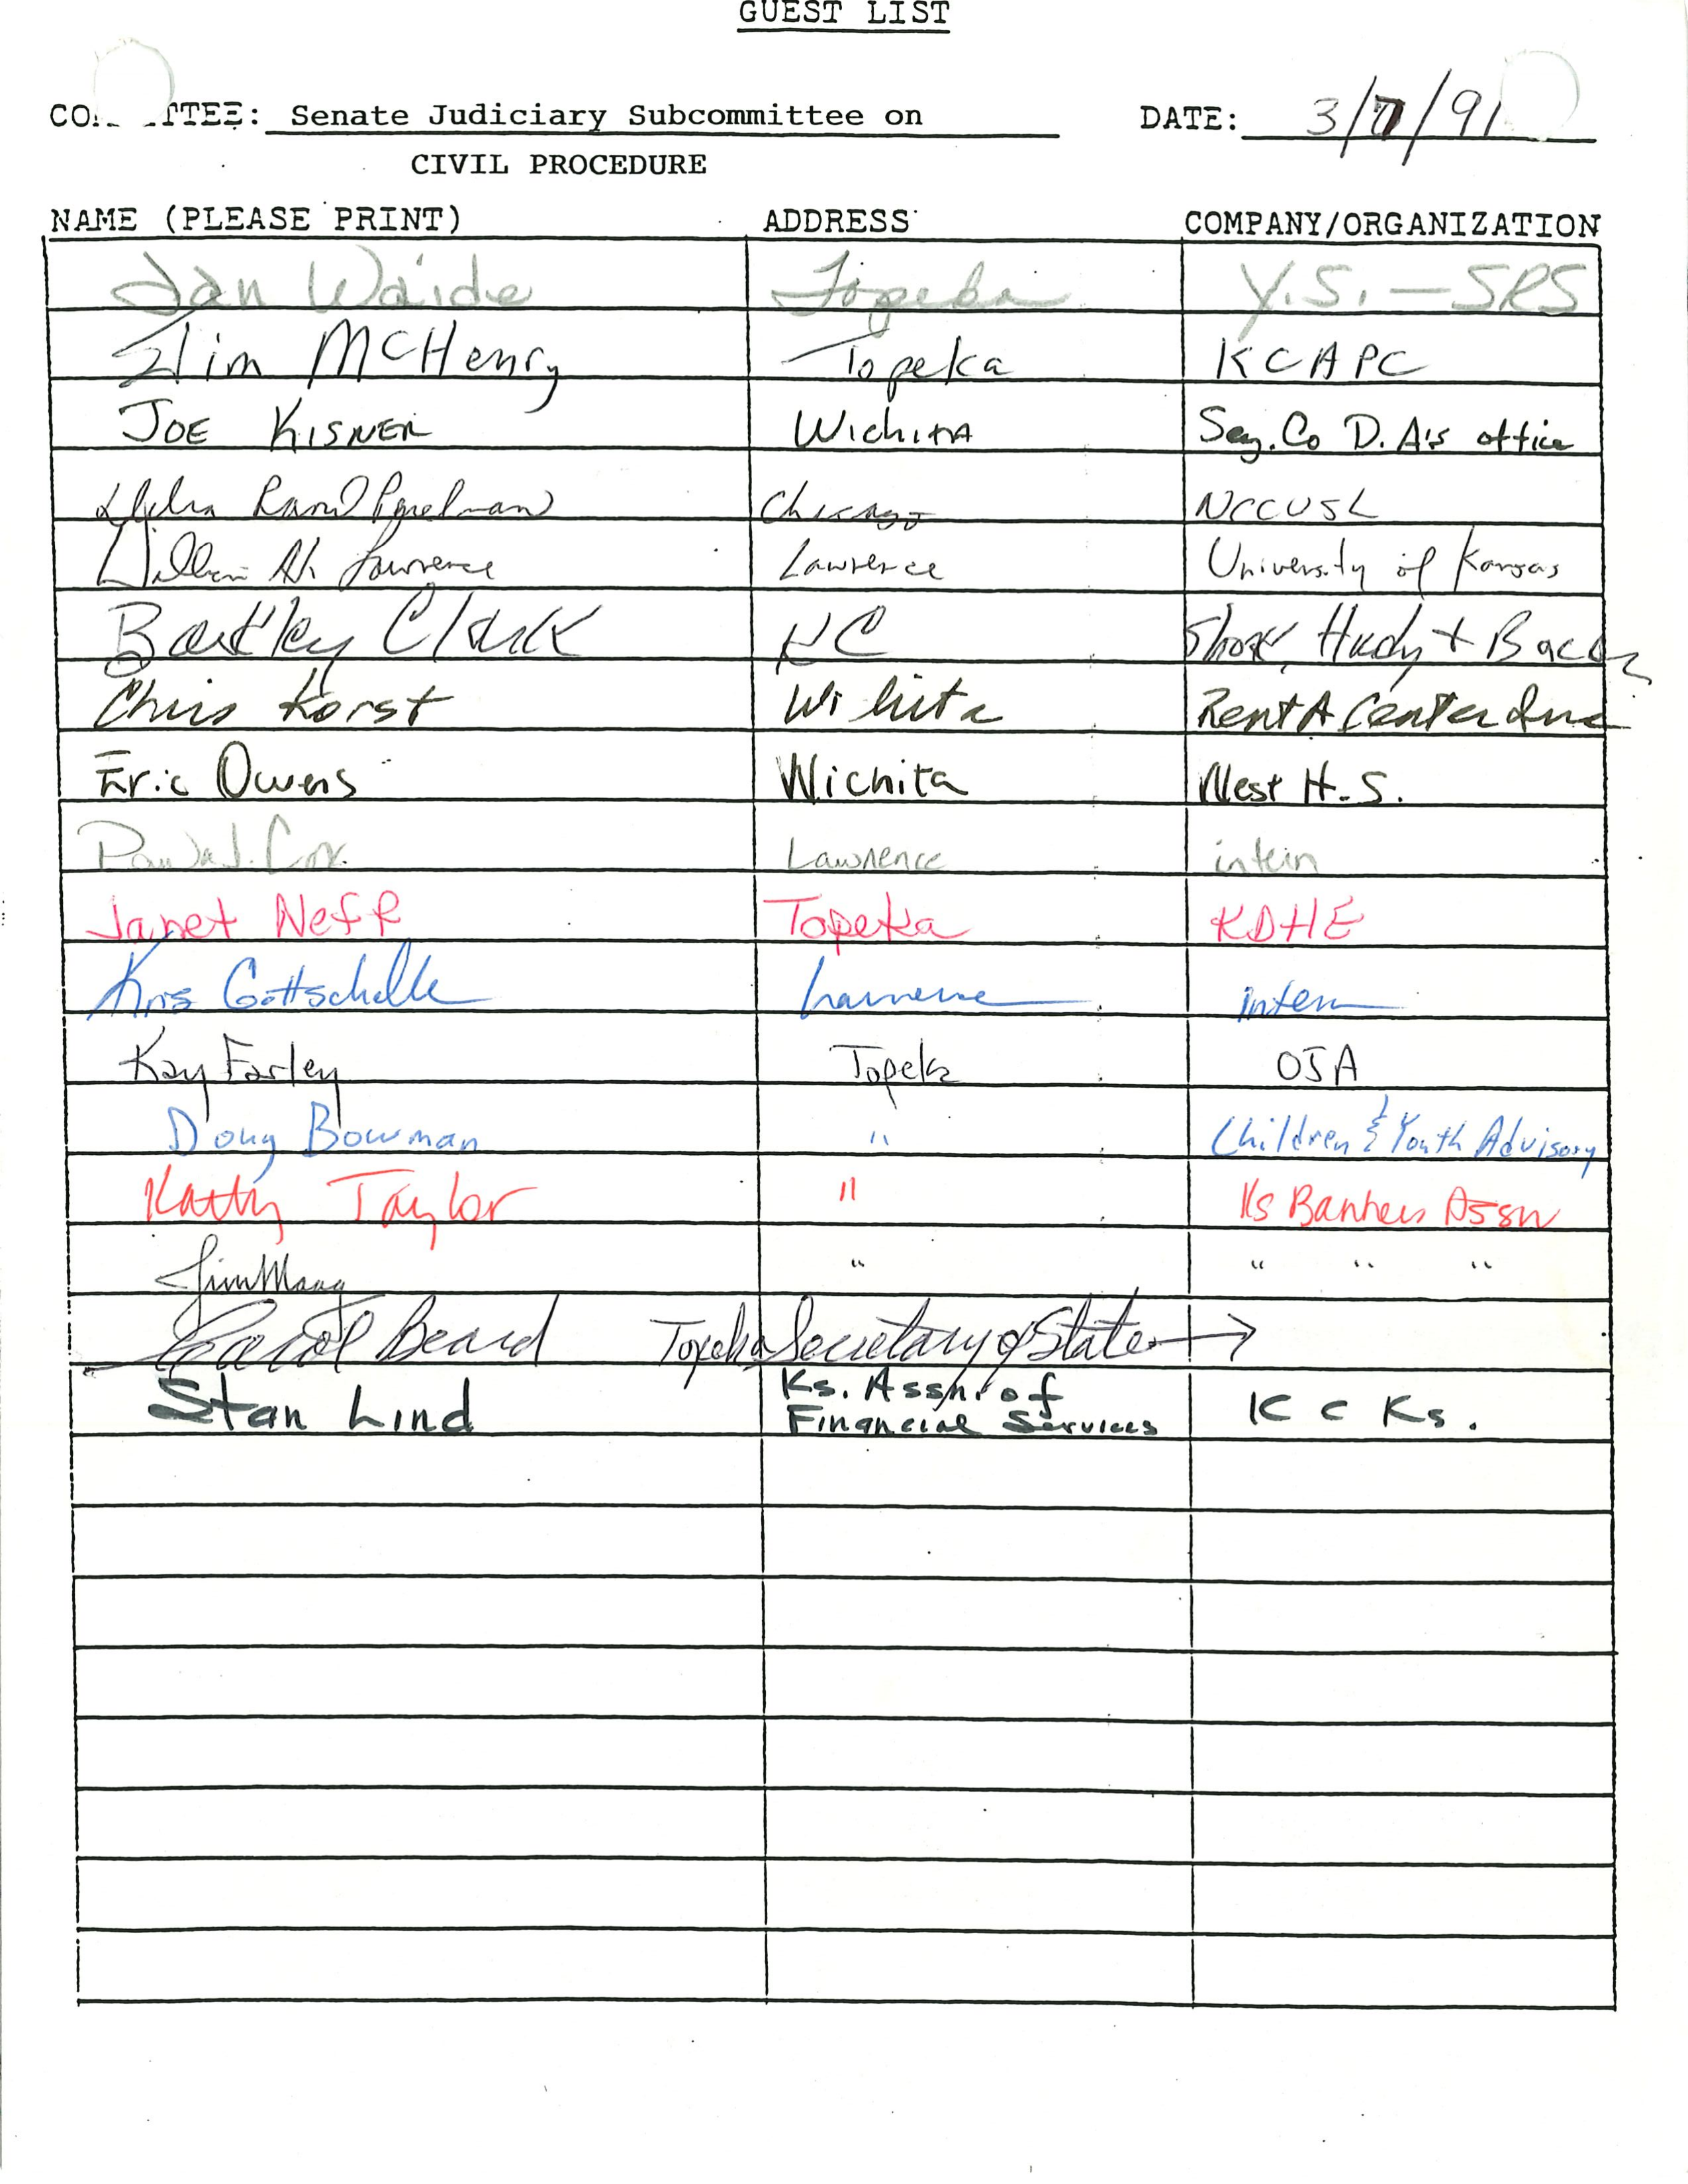 GUEST LIST
COMMITTEE: Senate Judiciary Subcommittee on DATE: 3/7/91
CIVIL PROCEDURE
NAME (PLEASE PRINT) ADDRESS COMPANY/ORGANIZATION
Jan Waide Topeka Y.S. — SRS
Jim McHenry Topeka KCAPC
JOE KISNER Wichita Seg. Co D. A's office
Chicago NCCUSL
William H. Lawrence Lawrence University of Kansas
Barkley Clark KC Shook Hardy + Bacon
Chris Korst Wichita Rent A Center Inc
Eric Owens Wichita West H.S.
J. Cox Lawrence intern
Janet Neff Topeka KDHE
Kris Gottschalk Lawrence intern
Kay Farley Topeka OJA
Doug Bowman " Children & Youth Advisory
Kathy Taylor " Ks Bankers Assn
Jim Maag " " " "
Carol Beard Topeka Secretary of State →
Stan Lind Ks. Assn. of Financial Services K C Ks.